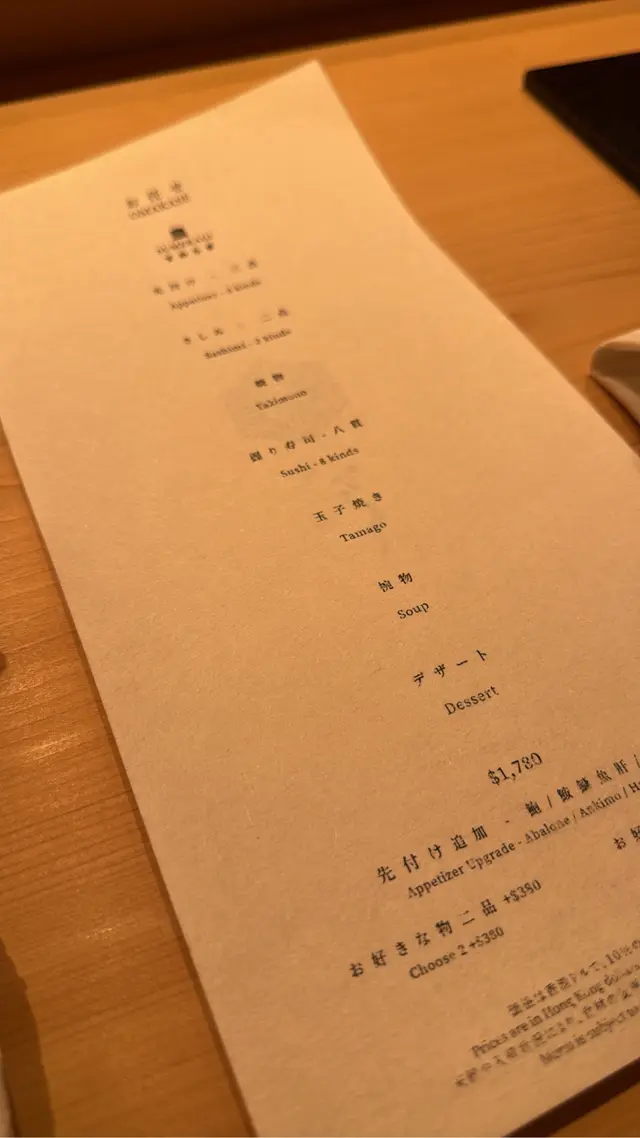 Appetizer - 3 kinds
さしみ - 二品
Sashimi - 2 kinds
焼物
Yakimono
握り寿司 - 八貫
Sushi - 8 kinds
玉子焼き
Tamago
椀物
Soup
デザート
Dessert
$1,780
先付け追加 - 鮑 / 鮟鱇魚肝 /
Appetizer Upgrade - Abalone / Ankimo /
お好
お好きな物二品 +$380
Choose 2 +$380
Prices are in Hong Kong
Menu is subject to